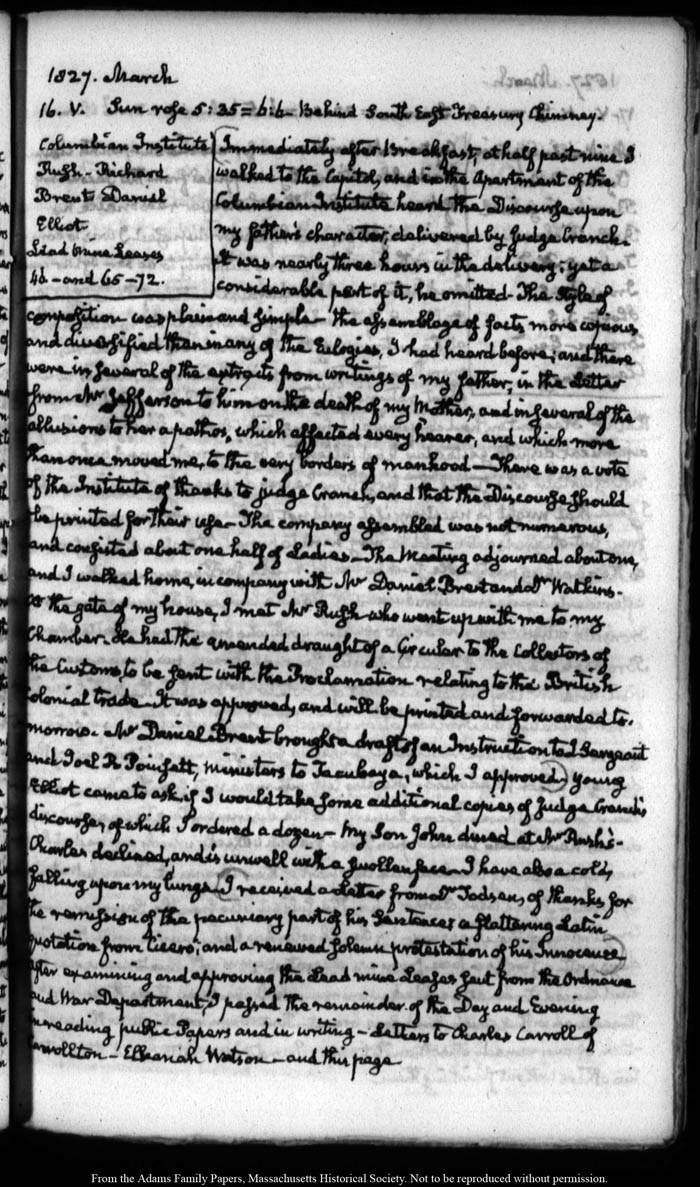 1827. March
16. V. Sun rose 5:35 = 6:6 - Behind South East Treasury Chimney.
Columbian Institute
Rush - Richard
Brent Daniel
Elliot
Lead Mine Leases
46 - and 65 - 72.
Immediately after Breakfast, at half past nine I
walked to the Capitol, and in the Apartment of the
Columbian Institute heard the Discourse upon
my father's character, delivered by Judge Cranch.
It was nearly three hours in the delivery; yet a
considerable part of it, he omitted - The Style of
composition was plain and simple - the assemblage of facts more copious
and diversified than in any of the Eulogies, I had heard before; and there
were in several of the extracts from writings of my father, in the Letter
from Mr Jefferson to him on the death of my Mother, and in several of the
allusions to her a pathos, which affected every hearer, and which more
than once moved me, to the very borders of manhood - There was a vote
of the Institute of thanks to judge Cranch, and that the Discourse should
be printed for their use - The company assembled was not numerous,
and consisted about one half of Ladies - The Meeting adjourned about one,
and I walked home, in company with Mr Daniel Brent and Dr Watkins.
At the gate of my house, I met Mr Rush who went up with me to my
Chamber. He had the amended draught of a Circular to the Collectors of
the Customs, to be sent with the Proclamation relating to the British
Colonial trade. It was approved, and will be printed and forwarded to-
morrow. Mr Daniel Brent brought a draft of an Instruction to J Sergeant
and Joel R Poinsett, Ministers to Tacubaya, which I approved. young
Elliot came to ask if I would take some additional copies of Judge Cranch's
discourse, of which I ordered a dozen - My Son John dined at Mr Rush's -
Charles declined, and is unwell with a swollen face - I have also a cold,
falling upon my lungs - I received a Letter from Dr Todsen, of thanks for
the remission of the pecuniary part of his Sentence; a flattering Latin
quotation from Cicero; and a renewed solemn protestation of his Innocence
After examining and approving the Lead mine Leases sent from the Ordnance
and War Department, I passed the remainder of the Day and Evening
in reading public Papers and in writing - Letters to Charles Carroll of
Carrollton - Elkanah Watson - and this page
From the Adams Family Papers, Massachusetts Historical Society. Not to be reproduced without permission.